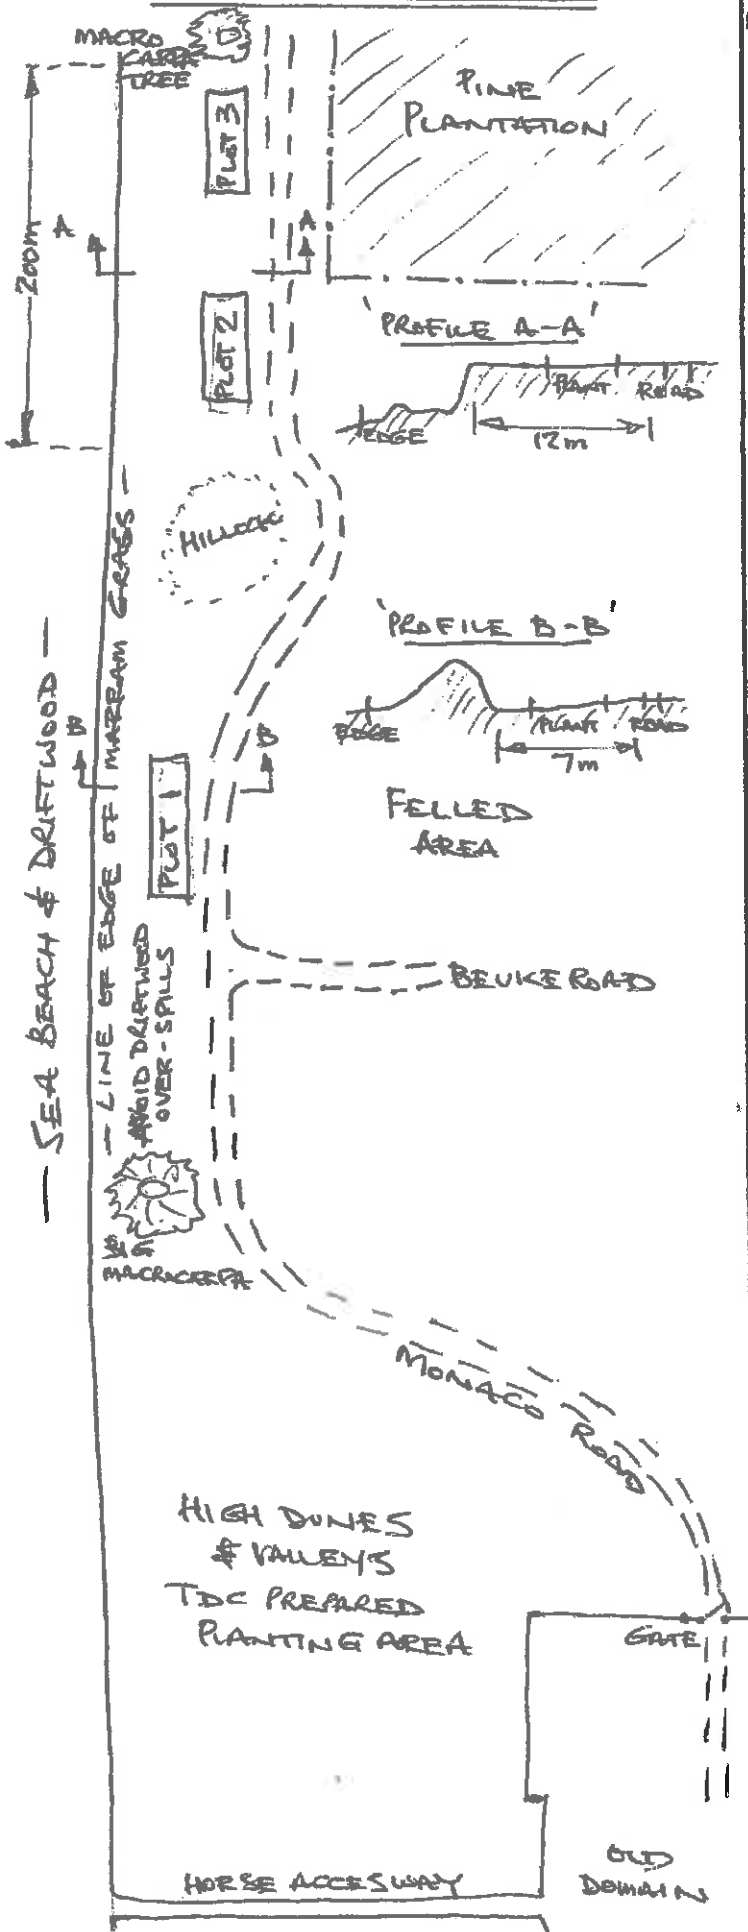 MACRO
CARPA
TREE
PLOT 3
PINE
PLANTATION
200m
A
A
PLOT 2
'PROFILE A-A'
PLANT
ROAD
EDGE
12m
HILLOCK
'PROFILE B-B'
EDGE
PLANT
ROAD
7m
B
B
PLOT 1
FELLED
AREA
— SEA BEACH & DRIFTWOOD —
— LINE OF EDGE OF MARRAM GRASS —
AVOID DRIFTWOOD
OVER-SPILLS
ROAD
MACROCARPA
MONACO ROAD
HIGH DUNES
& VALLEYS
TDC PREPARED
PLANTING AREA
GATE
HORSE ACCESWAY
OLD
DOMAIN